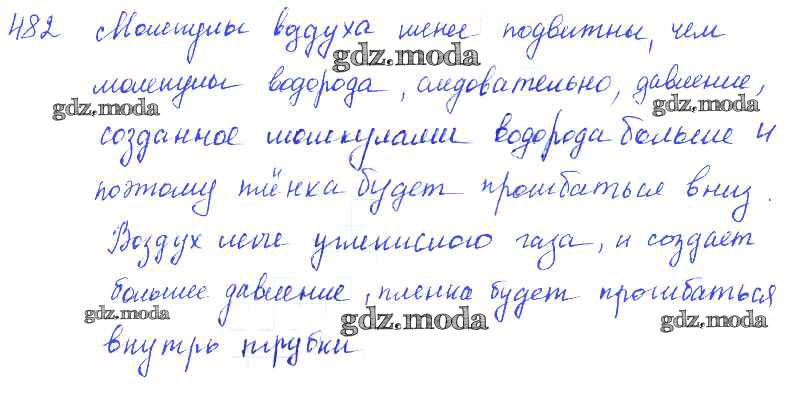 482 Молекулы воздуха менее подвижны, чем
gdz.moda
молекулы водорода, следовательно, давление,
gdz.moda gdz.moda
созданное молекулами водорода больше и
поэтому плёнка будет прогибаться вниз.
Воздух легче углекислого газа, и создает
большее давление, пленка будет прогибаться
gdz.moda gdz.moda gdz.moda
внутрь трубки